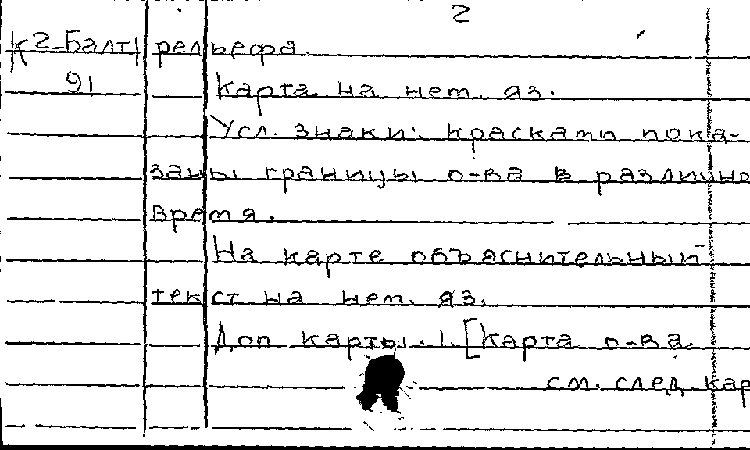 2
К2-Балт рельефа.
91 Карта на нем. яз.
Усл. знаки: красками пока-
заны границы о-ва в различно
время.
На карте объяснительный
текст на нем. яз.
Доп карты. 1. [Карта о-ва
см. след кар